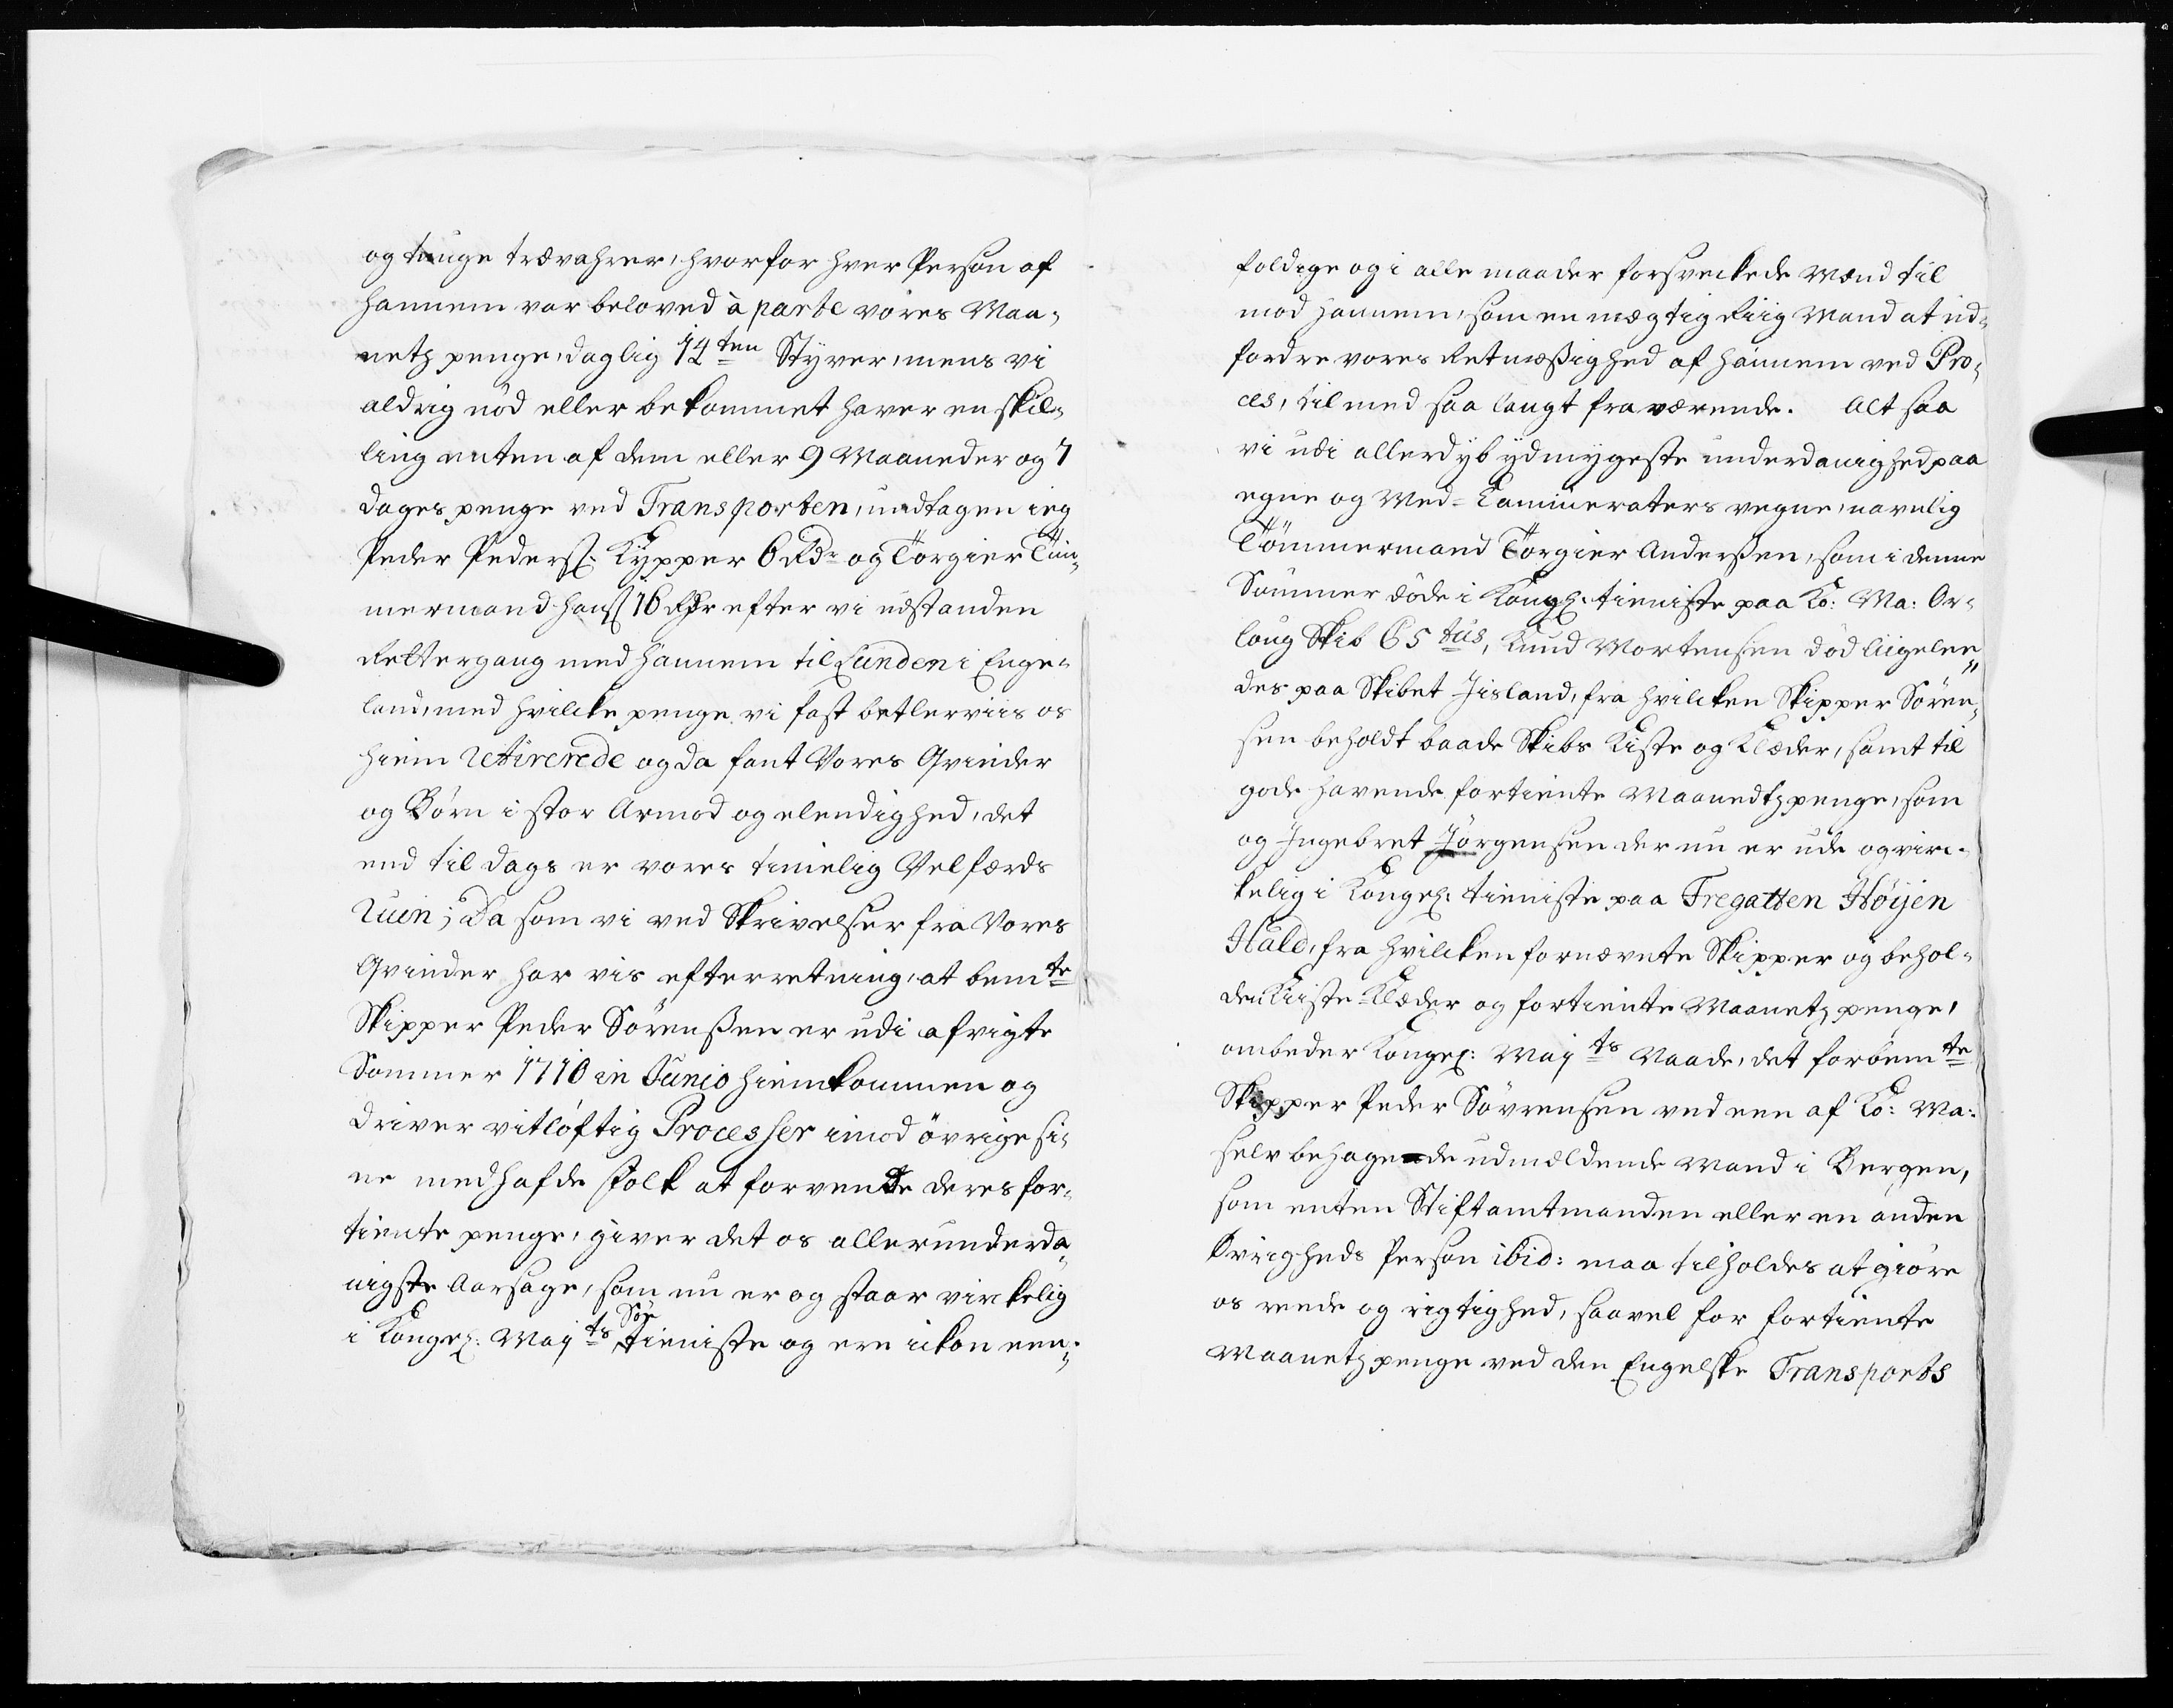 og tunge trævahrer, hvorfor hver Person af
hannem var beloved à parte vores Maa¬
netz penge, daglig 14 ten Styver, mens vi
aldrig nød eller bekommet haver en skil¬
ling enten af dem eller 9 Maaneder og 7
dages penge ved Transporten, undtagen ieg
Peder Peders. Kypper 6 Rd. og Torgier Tüm¬
mermand hans 16 Rdr efter vi udstanden
Rettergang med hannem til Lunden i Enge¬
land, med hvilcke penge vi fast betlerviis os
hiem retirerede og da fant Vores Qvinder
og Börn i stor Armod og elendighed, det
end til dags er vores timelig Velfærds
Ruin; Da som vi ved Skrivelser fra Vores
Qvinder har vis efterretning, at bemte
Skipper Peder Sörenßen er udi afvigte
Sommer 1710 in Junio hiemkommen og
driver vitløftig Processer imod övrige si¬
ne medhafde folk at forvente deres for¬
tiente penge, giver det os allerunderda¬
nigste Aarsage, som nu er og staar virkelig
i Kongel: Maj ts Söe tieniste og ere ickon een¬
foldige og i alle maader forsveckede Mænd til
mod hannem, som en mægtig Riig Mand at ud¬
fordre vores Retmæßighed af hannem ved Pro¬
ces, til med saa langt fra værende. Alt saa
vi udi allerdyb ydmygeste underdanighed paa
egne og Med-Cammeraters vegne, navnlig
Tömmermand Torgier Anderßen, som i denne
Sommer döde i Kongl. tieniste paa Ko: Ma: Or¬
loug Skib 65 tus, Knud Mortensen död liigelee
des paa Skibet Jisland, fra hvilcken Skipper Sören¬
sen beholdt baade Skibs Kiste og Klæder, samt til
gode havende fortiente Maanedtz penge, som
og Ingebret Jörgensen der nu er ude og vir¬
kelig i Kongel: tieniste paa Fregatten Höyen
Hald, fra hvilcken fornævnte Skipper og behol¬
der Kiiste-Klæder og fortiente Maanetz penge,
ombeder Kongel: Maj ts Naade, det forbemte
Skipper Peder Sörrensen ved een af Ko: Ma:
selv behagende udmeldende Mand i Bergen,
som enten Stiftamtmanden eller en anden
Övrigheds Person ibid: maa tilholdes at giöre
os reede og rigtighed, saavel for fortiente
Maanetz penge ved den Engelske Transports